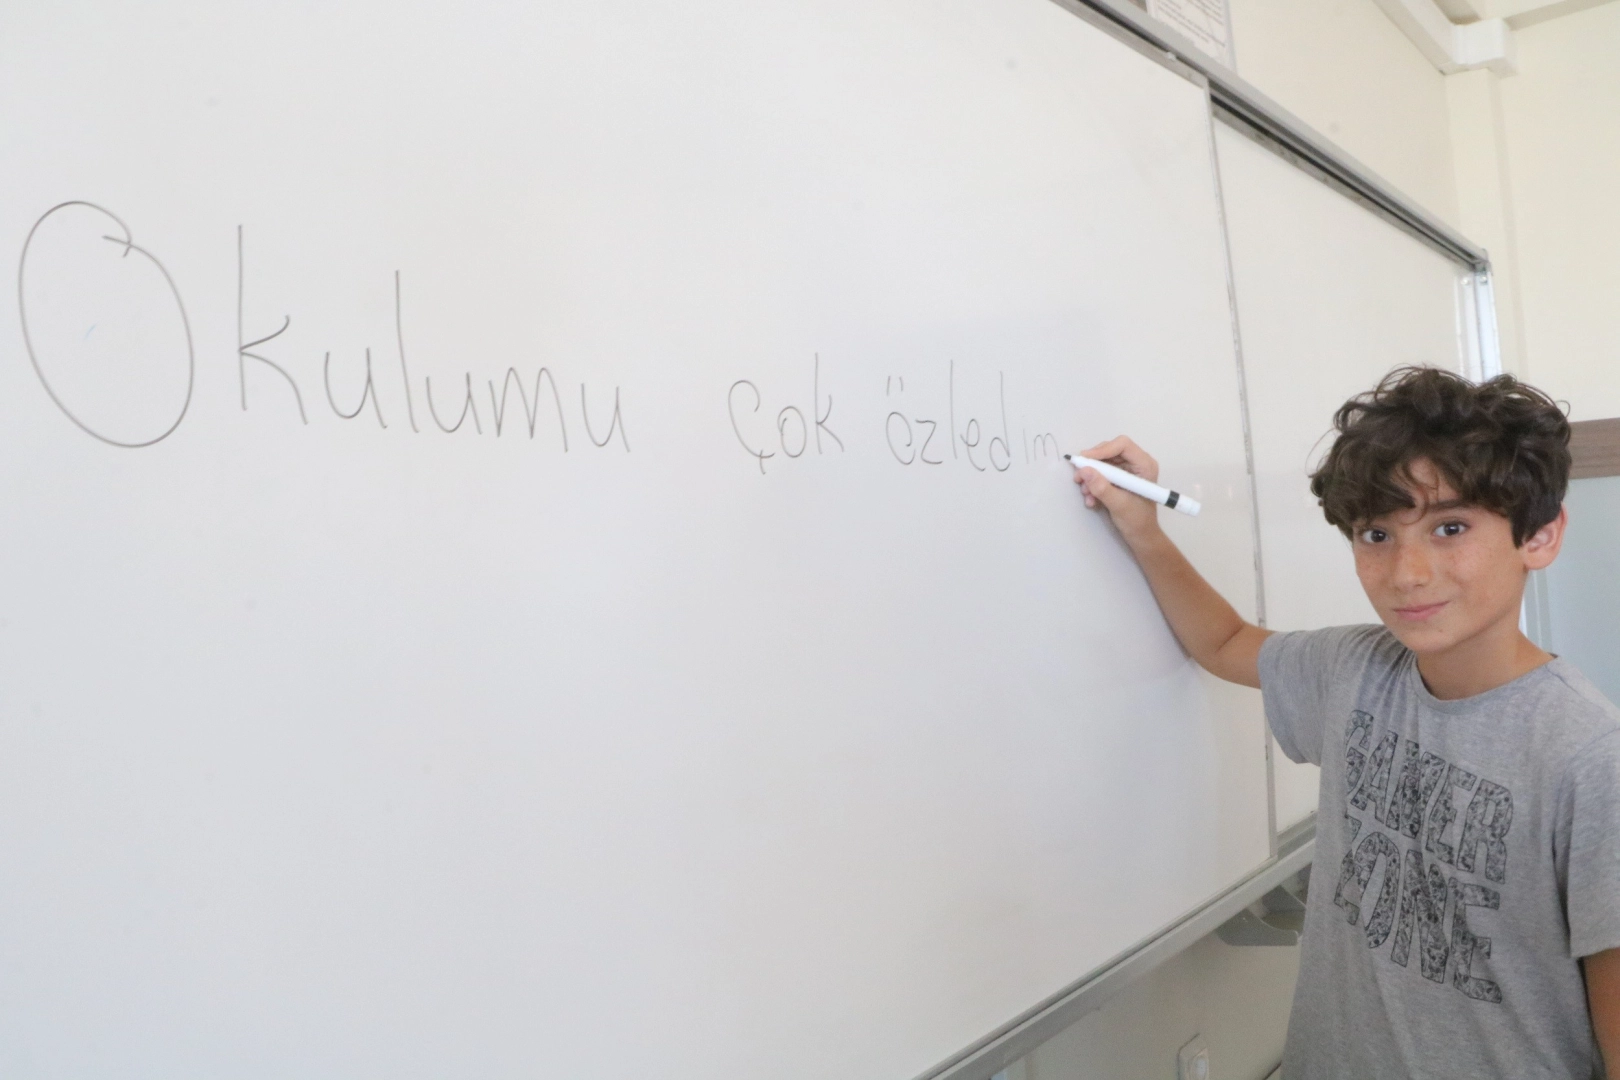 Okulumu çok özledim
GAMER
ZONE